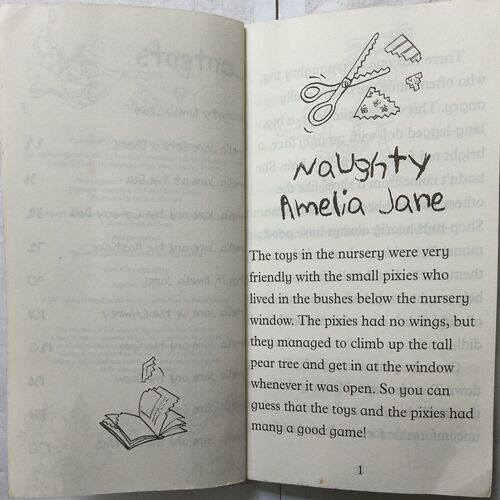 Naughty
Amelia Jane
The toys in the nursery were very
friendly with the small pixies who
lived in the bushes below the nursery
window. The pixies had no wings, but
they managed to climb up the tall
pear tree and get in at the window
whenever it was open. So you can
guess that the toys and the pixies had
many a good game!
1